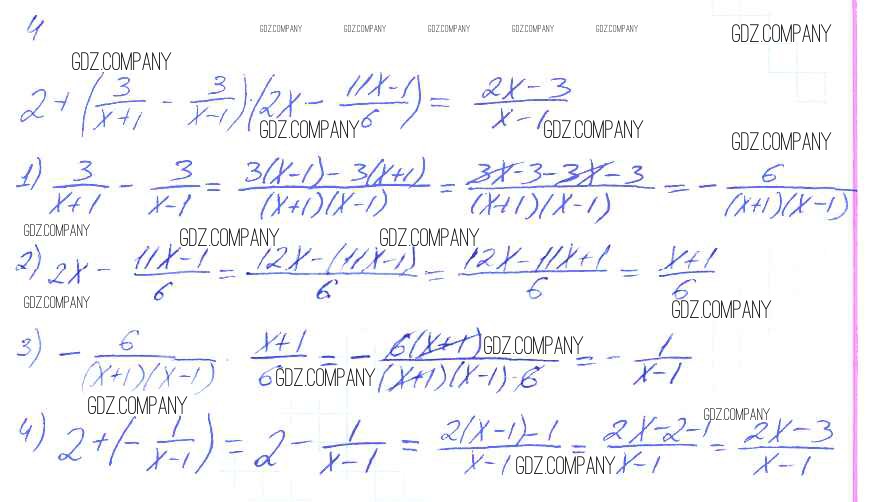 4 GDZ.COMPANY GDZ.COMPANY GDZ.COMPANY GDZ.COMPANY GDZ.COMPANY GDZ.COMPANY
GDZ.COMPANY
2 + (3/(x+1) - 3/(x-1)) · (2x - (11x-1)/6) = (2x-3)/(x-1)
GDZ.COMPANY GDZ.COMPANY GDZ.COMPANY
1) 3/(x+1) - 3/(x-1) = (3(x-1)-3(x+1))/((x+1)(x-1)) = (3x-3-3x-3)/((x+1)(x-1)) = - 6/((x+1)(x-1))
GDZ.COMPANY GDZ.COMPANY GDZ.COMPANY
2) 2x - (11x-1)/6 = (12x-(11x-1))/6 = (12x-11x+1)/6 = (x+1)/6
GDZ.COMPANY GDZ.COMPANY
3) - 6/((x+1)(x-1)) · (x+1)/6 = - (6(x+1))/((x+1)(x-1)·6) = - 1/(x-1)
GDZ.COMPANY GDZ.COMPANY
GDZ.COMPANY GDZ.COMPANY
4) 2 + (- 1/(x-1)) = 2 - 1/(x-1) = (2(x-1)-1)/(x-1) = (2x-2-1)/(x-1) = (2x-3)/(x-1)
GDZ.COMPANY